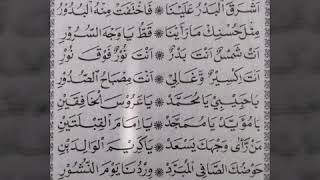 اَشْرَقَ الْبَدْرُ عَلَيْنَا ❋ فَاخْتَفَتْ مِنْهُ الْبُدُوْرُ
مِثْلَ حُسْنِكَ مَارَاَيْنَا ❋ قَطُّ يَاوَجْهَ السُّرُوْرِ
اَنْتَ شَمْسٌ اَنْتَ بَدْرٌ ❋ اَنْتَ نُوْرٌ فَوْقَ نُوْرٍ
اَنْتَ اِكْسِيْرٌ وَّغَالِيْ ❋ اَنْتَ مِصْبَاحُ الصُّدُوْرِ
يَاحَبِيْبِيْ يَامُحَمَّدُ ❋ يَاعَرُوْسَ الْخَافِقَيْنِ
يَامُؤَيَّدُ يَامُمَجَّدُ ❋ يَااِمَامَ الْقِبْلَتَيْنِ
مَنْ رَّاٰى وَجْهَكَ يَسْعَدْ ❋ يَاكَرِيْمَ الْوَالِدَيْنِ
حَوْضُكَ الصَّافِى الْمُبَرَّدْ ❋ وِرْدُنَا يَوْمَ النُّشُوْرِ